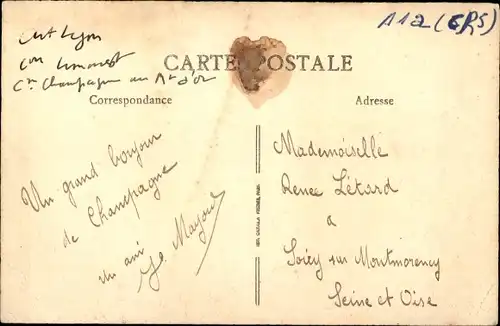 art Lyon
con Limonest
Cne Champagne au Mt d'or
112 (CPS)
CARTE POSTALE
Correspondance
Adresse
Un grand bonjour
de Champagne
un ami
Mademoiselle
Renee Létard
a
Soicy sur Montmorency
Seine et Oise